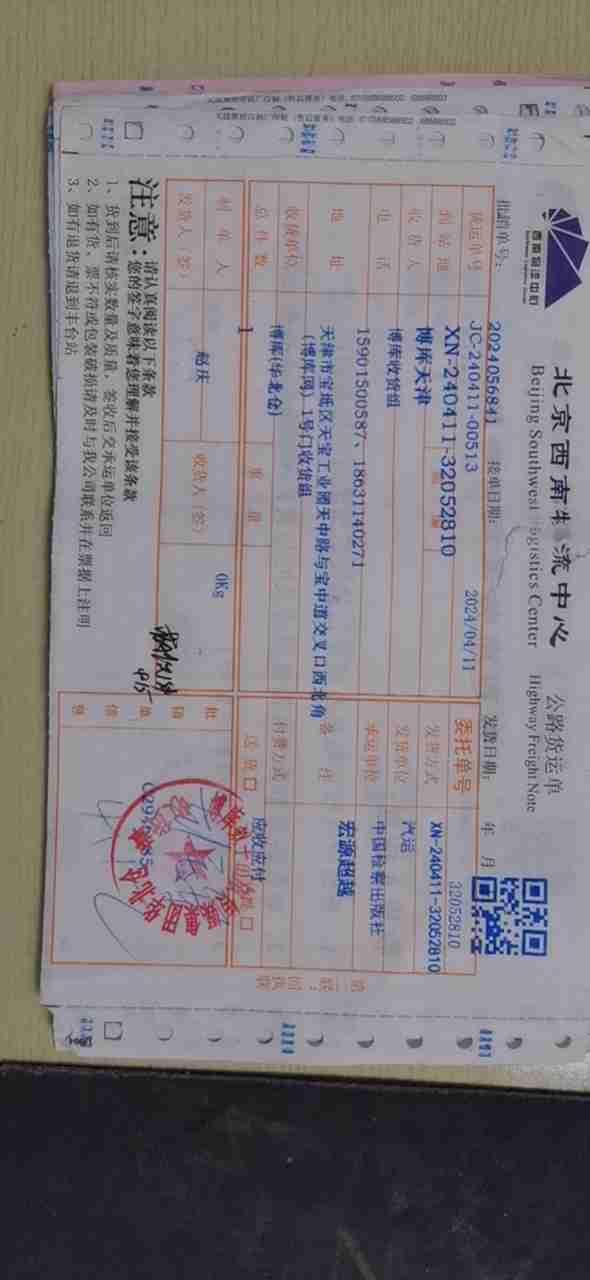 西南物流中心
北京西南物流中心 公路货运单
Beijing Southwest Logistics Center Highway Freight Note
批销单号： 2024056841 接单日期： 2024/04/11 发货日期： 年 月
货运单号 JC-240411-00513 委托单号 32052810
XN-240411-32052810
到站地 博库天津 发货方式 汽运
XN-240411-32052810
收货人 博库收货组 发货单位 中国检察出版社
电话 15901500587、18631140271 承运单位 宏源超越
地址 天津市宝坻区天宝工业园天中路与宝中道交叉口西北角
(博库网) 1号门收货组 备注
收货单位 博库(华北仓) 付费方式 应收应付
总件数 1 重量 0Kg 送货□
制单人 赵庆
发货人（签） 收货人（签）
4/15
批销单信息
注意：请认真阅读以下条款
您的签字意味着您理解并接受该条款
1、货到后请核实数量及质量，签收后交承运单位返回
2、如有货、票不符或包装破损请及时与我公司联系并在票据上注明
3、如有退货请退到丰台站
第二联：回执联